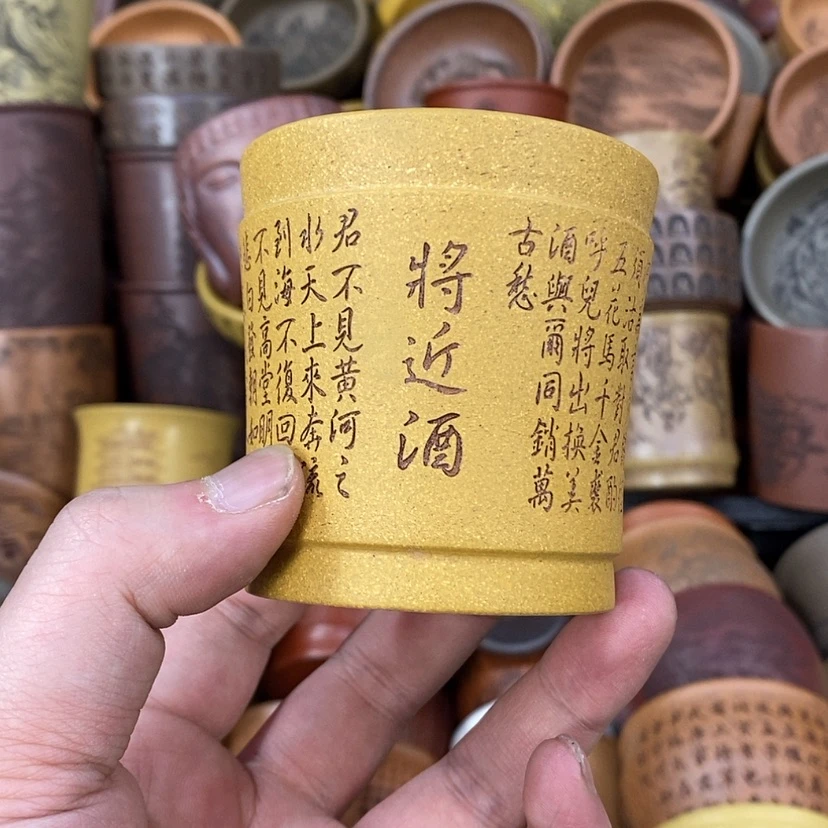 將近酒
君不見黃河之
水天上來奔流
到海不復回
不見高堂明
悲白髮朝如
須沽取對君酌
五花馬千金裘
呼兒將出換美
酒與爾同銷萬
古愁